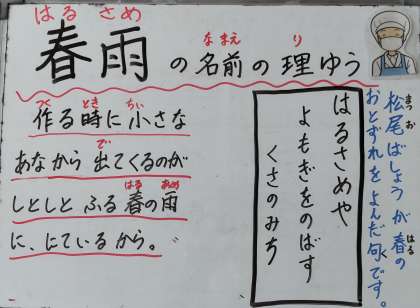 春雨の名前の理ゆう
はる さめ
な まえ
り
作る時に小さな
つく
とき
ちい
あなから出てくるのが
で
しとしとふる春の雨
はる
あめ
に、にているから。
はるさめや
よもぎをのばす
くさのみち
松尾ばしょうが春の
まつ お
はる
おとずれをよんだ句です。
く